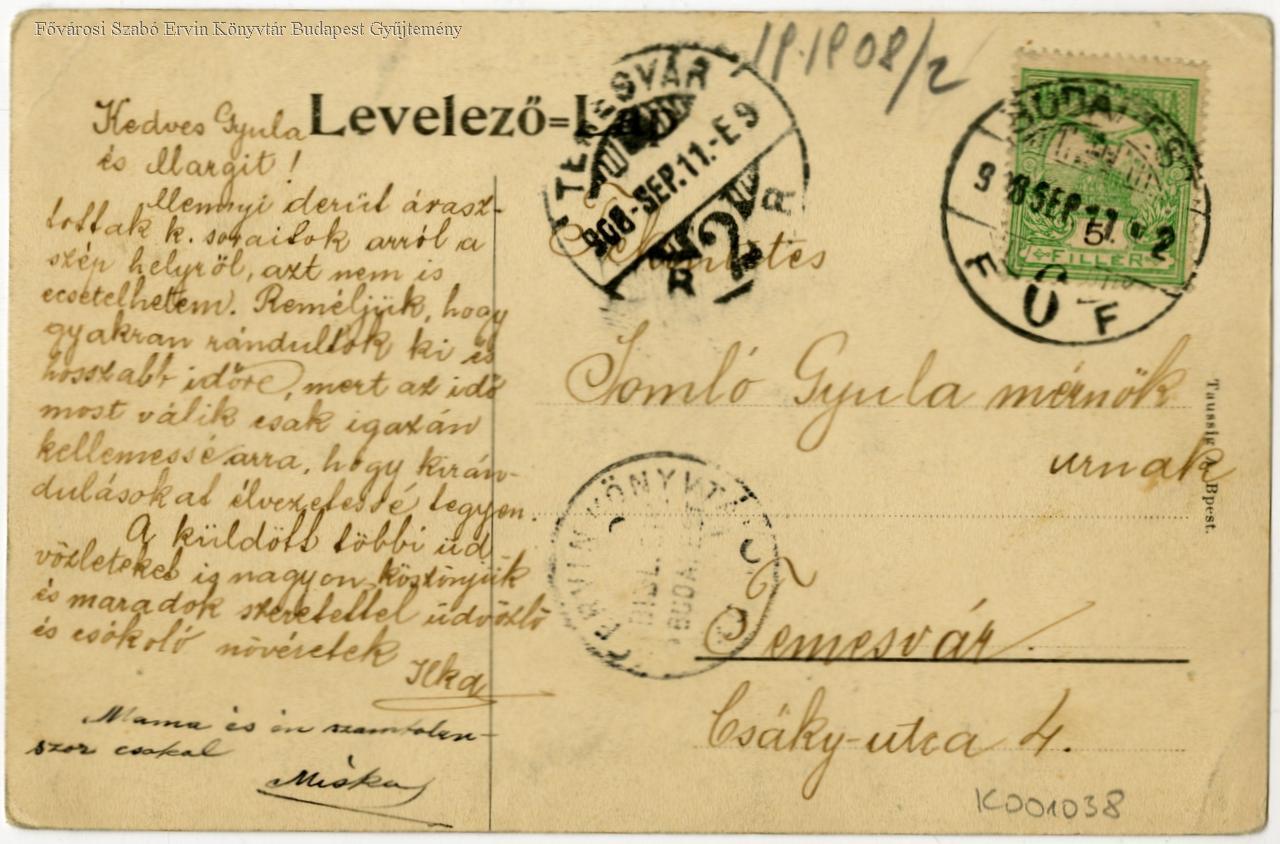 Fővárosi Szabó Ervin Könyvtár Budapest Gyűjtemény
19.1908/2
Levelező=Lap
TEMESVÁR
908-SEP.11.-E9
R 2 R
BUDAPEST
908 SEP 11
5
FILLÉR
F 6 F
Kedves Gyula
és Margit!
Mennyi derüt árasz-
tottak k. soraitok arról a
szép helyről, azt nem is
ecsetelhetem. Reméljük, hogy
gyakran rándultok ki és
hosszabb időre, mert az idő
most válik csak igazán
kellemessé arra, hogy kirán-
dulásokat élvezetessé tegyen.
A küldött többi üd
vözleteket ig nagyon köszönjük
és maradok szeretettel üdvözlő
és csókoló növéretek
Ilka
Mama és én szamtalan-
szor csokol
Miska
Tekintetes
Somló Gyula mérnök
urnak
Temesvár
Csáky-utca 4.
ERVIN KÖNYVTÁR
BUDA
Taussig A. Bpest.
K001038